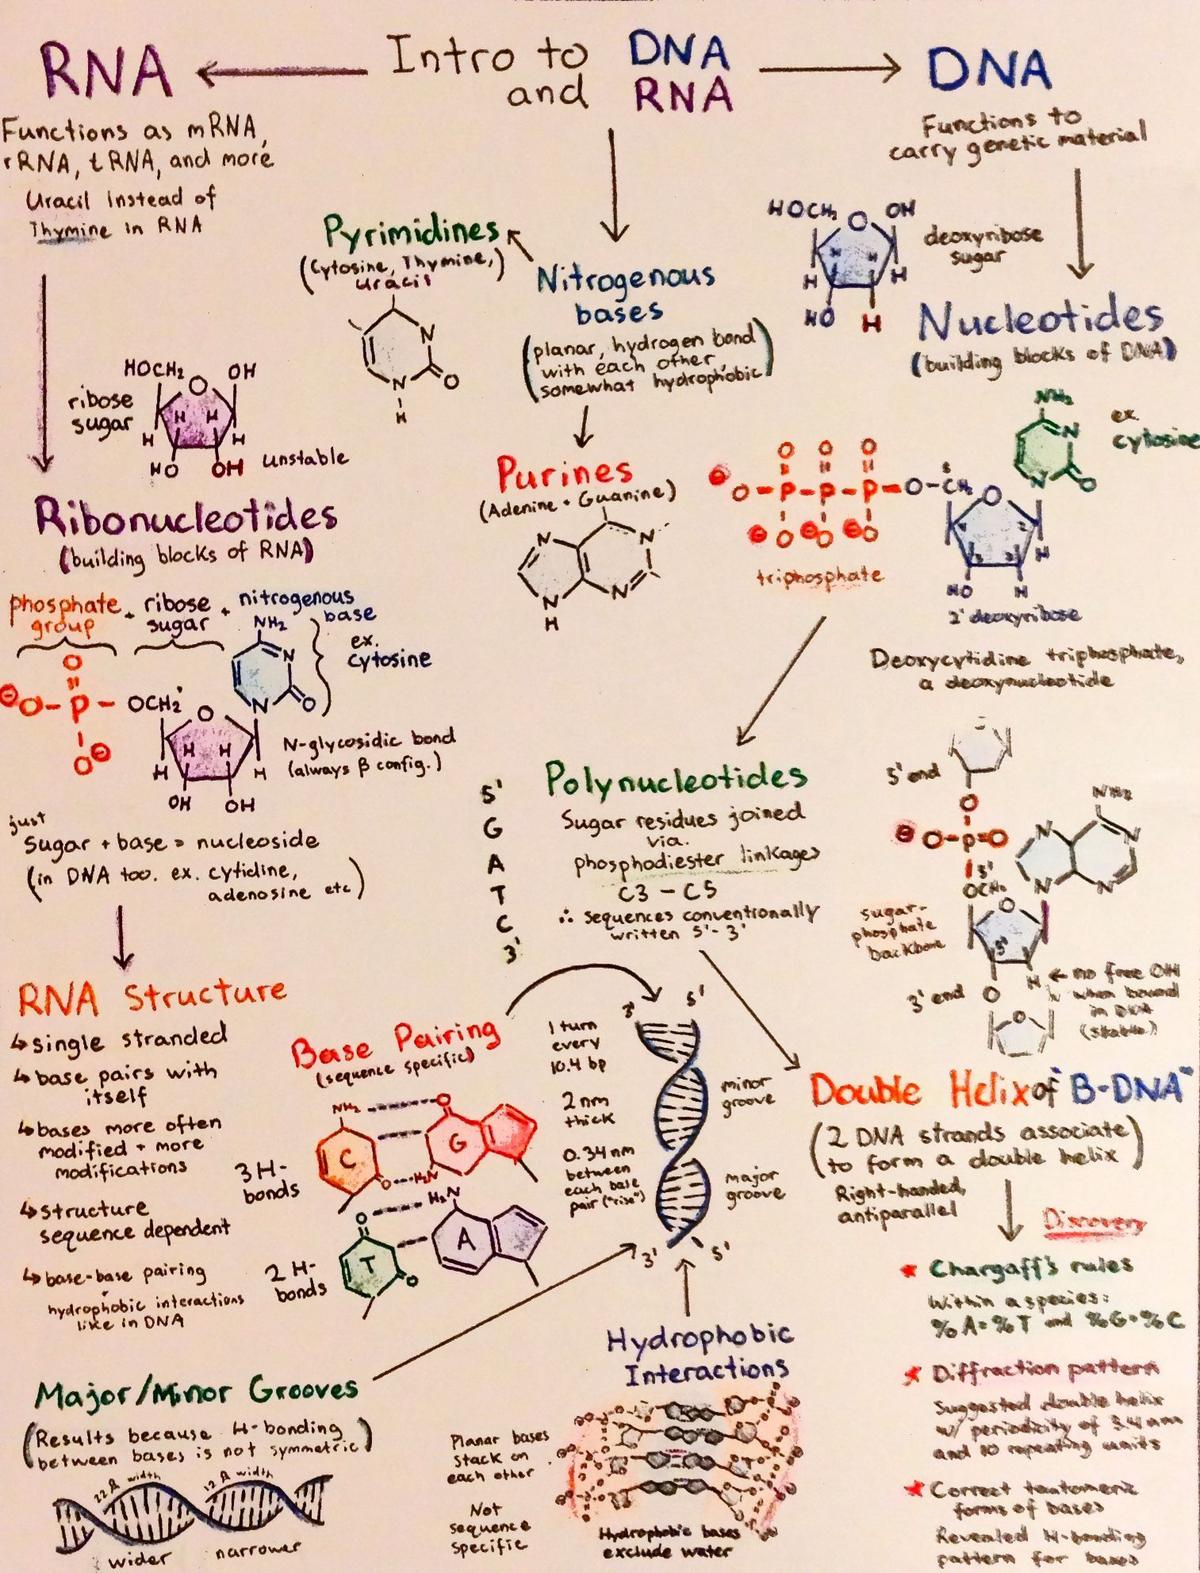 Intro to DNA
and RNA
RNA
Functions as mRNA,
rRNA, tRNA, and more
Uracil instead of
Thymine in RNA
HOCH₂
O
OH
ribose
sugar
H H
H H
HO
OH
unstable
Ribonucleotides
(building blocks of RNA)
phosphate + ribose + nitrogenous
group
sugar
base
NH₂
ex.
cytosine
O
N
⊖O-P-
OCH₂
N
O
O
O⊖
H H
H H
OH
OH
N-glycosidic bond
(always β config.)
just
Sugar + base = nucleoside
(in DNA too. ex. cytidine,
adenosine etc)
RNA Structure
↳single stranded
↳base pairs with
itself
↳bases more often
modified + more
modifications
↳structure
sequence dependent
↳base-base pairing
+
hydrophobic interactions
like in DNA
Pyrimidines
(Cytosine, Thymine,)
Uracil
N
N
O
H
Nitrogenous
bases
(planar, hydrogen bond
with each other
somewhat hydrophobic)
Purines
(Adenine + Guanine)
N
N
N
N
H
DNA
Functions to
carry genetic material
HOCH₂
O
OH
deoxyribose
sugar
H H
H H
HO
H
Nucleotides
(building blocks of DNA)
NH₂
ex.
cytosine
N
N
O
O O O
⊖
O-P-P-P-O-CH₂
O
O O O
⊖ ⊖ ⊖
triphosphate
HO
H
H
2' deoxyribose
Deoxycytidine triphosphate,
a deoxynucleotide
Polynucleotides
Sugar residues joined
via.
phosphodiester linkages
C3 - C5
∴ sequences conventionally
written 5'- 3'
5'
G
A
T
C
3'
5' end
O
⊖ O-P=O
5'
OCH₂
NH₂
N
N
N
N
O
sugar-
phosphate
backbone
3'
H
3' end
O
O
← no free OH
when bound
in DNA
(stable.)
Base Pairing
(sequence specific)
NH₂
O
C
G
O
H₂N
3 H-
bonds
O
H₂N
T
A
O
2 H-
bonds
3'
5'
1 turn
every
10.4 bp
2 nm
thick
0.34 nm
between
each base
pair ("rise")
minor
groove
major
groove
3'
5'
Double Helix of "B-DNA"
(2 DNA strands associate)
to form a double helix
Right-handed,
antiparallel
Discovery
★ Chargaff's rules
Within a species:
%A=%T and %G=%C
★ Diffraction pattern
Suggested double helix
w/ periodicity of 3.4 nm
and 10 repeating units
★ Correct tautomeric
forms of bases
Revealed H-bonding
pattern for bases
Major/Minor Grooves
(Results because H-bonding
between bases is not symmetric)
22 Å width
12 Å width
wider
narrower
Hydrophobic
Interactions
Planar bases
stack on
each other
Not
sequence
specific
Hydrophobic bases
exclude water